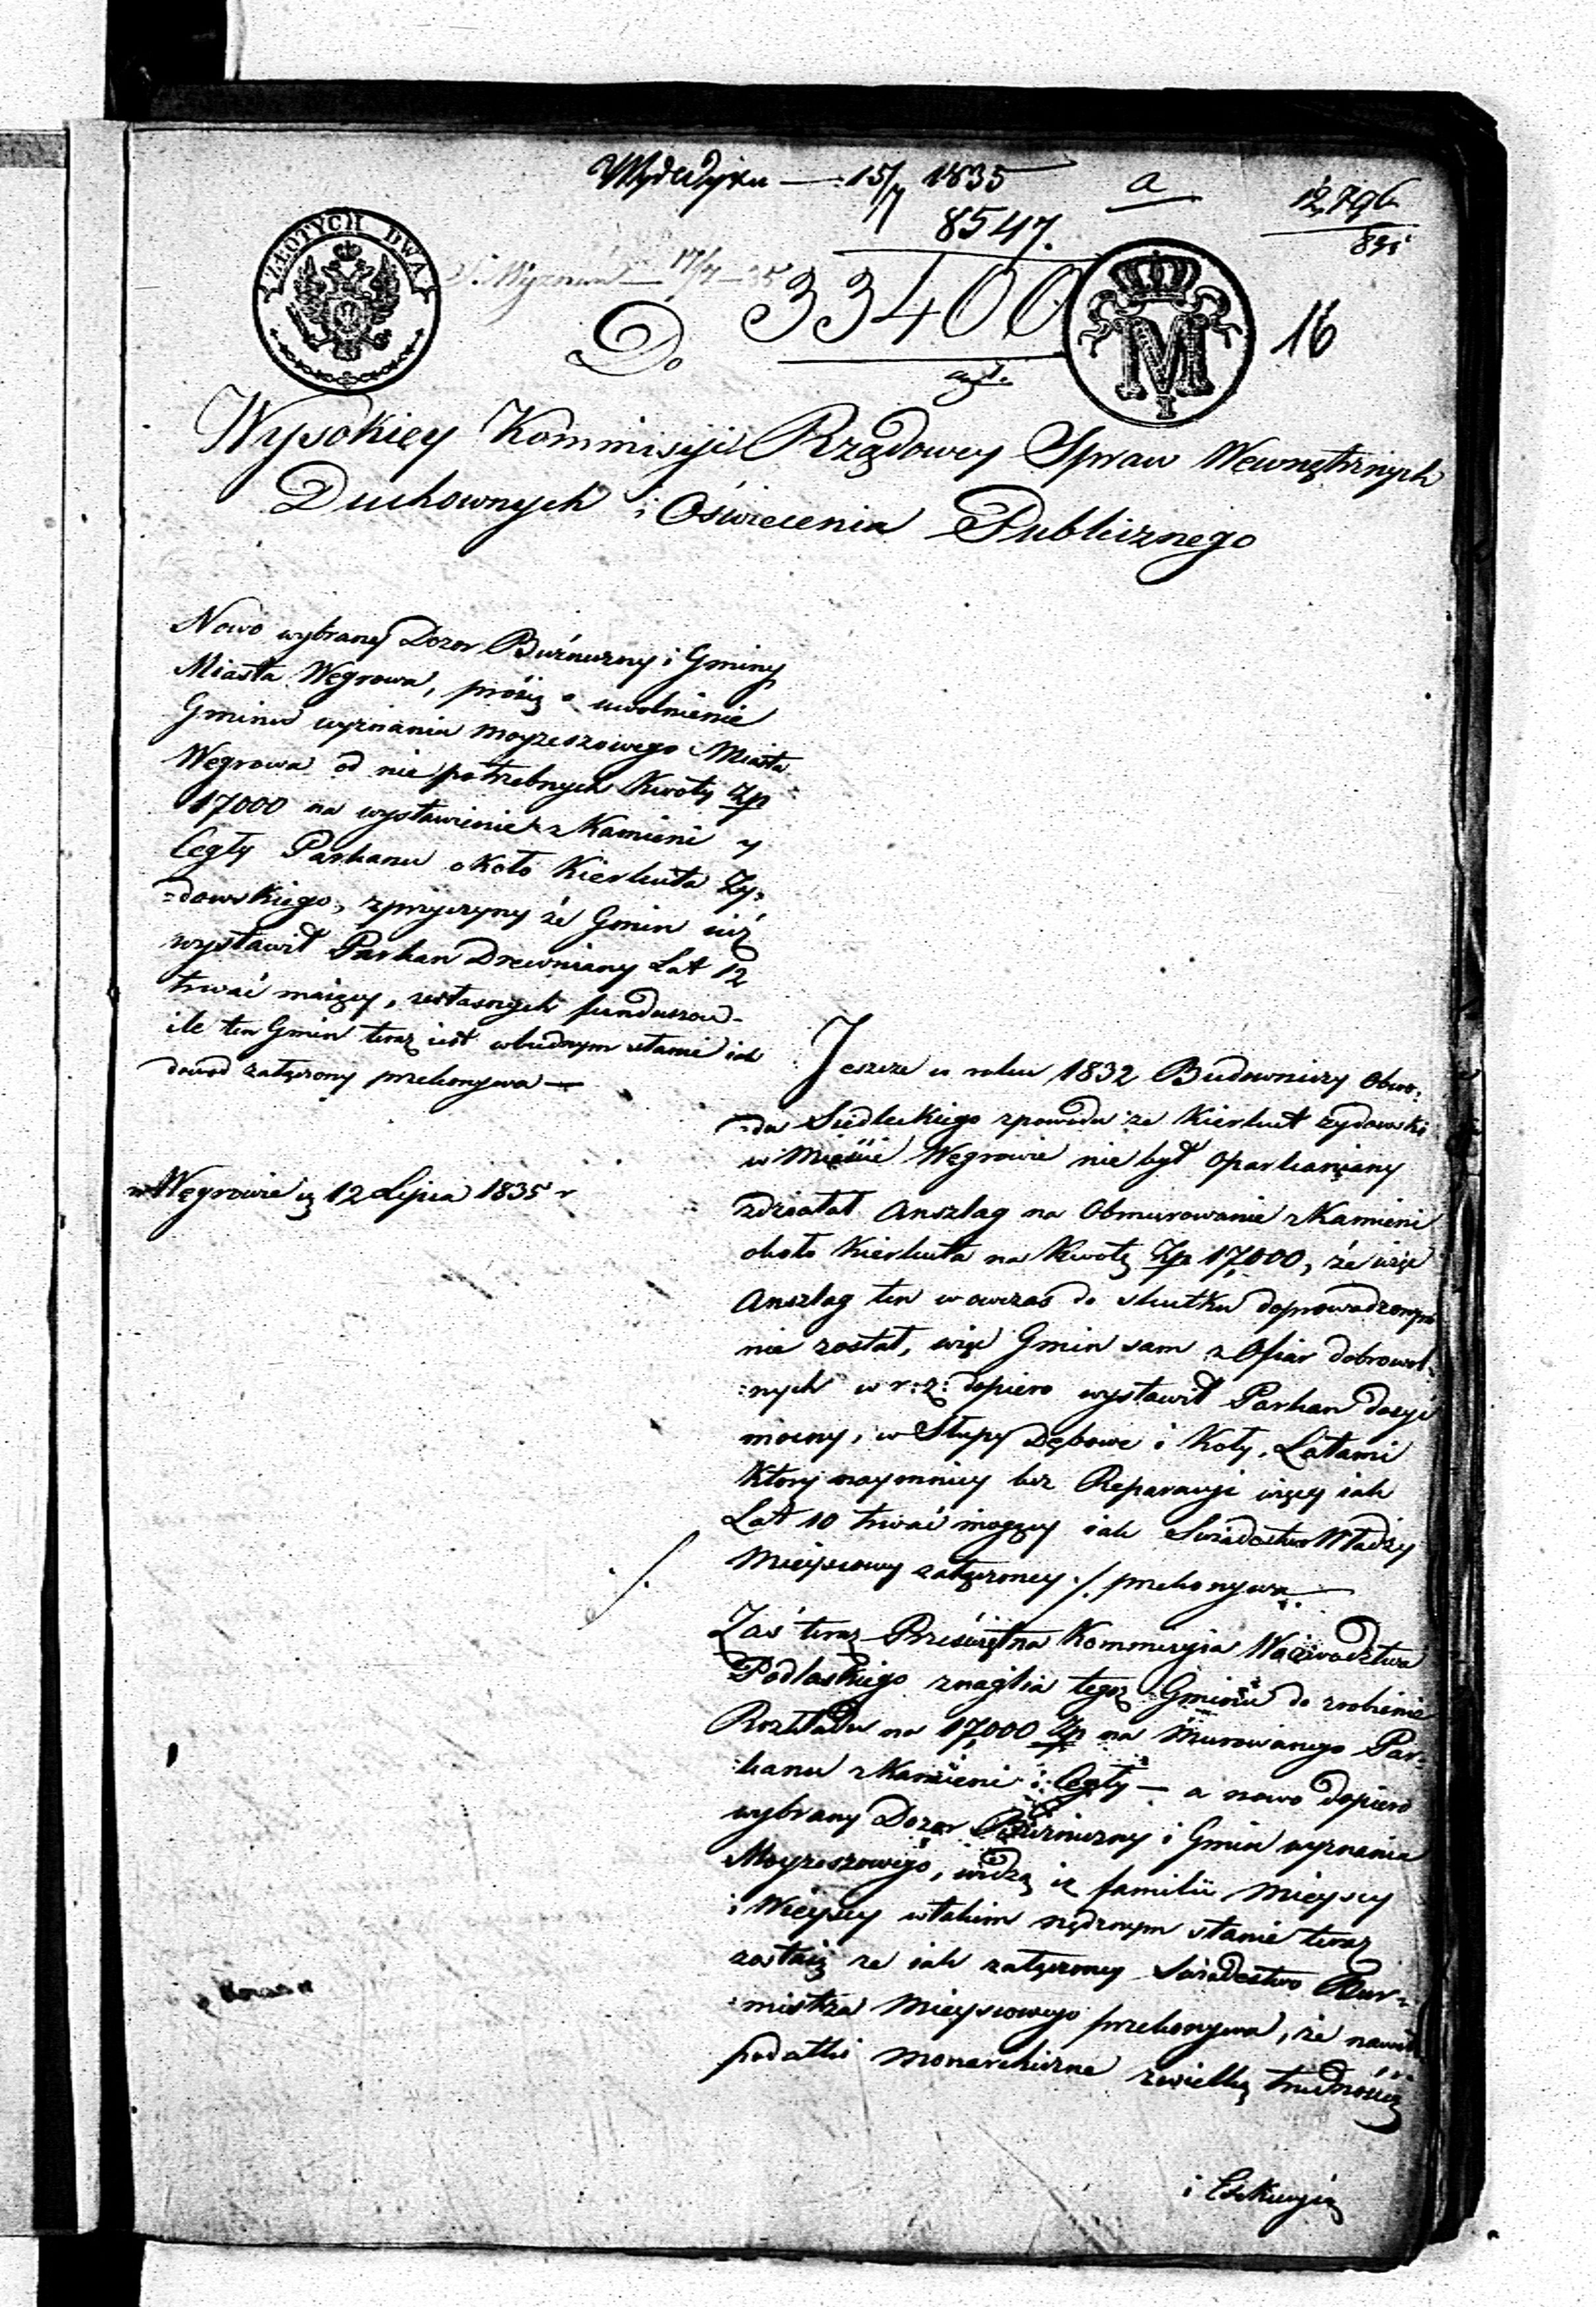 15/7 1835
8547.
a
12,796
835
ZŁOTYCH DWA
17/7 – 35
33400
16
M
I
Do
Wysokiey Kommissyi Rządowey Spraw Wewnętrznych
Duchownych i Oświecenia Publicznego
Nowo wybrany Dozor Bużniczny i Gminy
Miasta Węgrowa, proszą o uwolnienie
Gminu wyznania moyżeszowego Miasta
Węgrowa od nie potrzebnych Kwoty Zp
17000 na wystawienie z Kamieni y
Cegły Parkanu około Kierkuta Ży=
=dowskiego, zprzyczyny że Gmin iuż
wystawił Parkan Drewniany Lat 12
trwać maiący, zwłasnych funduszow -
ile ten Gmin teraz iest wbiednym stanie iak
dowod załączony przekonywa —
w Węgrowie d 12 Lipca 1835 r
Jeszcze w roku 1832 Budowniczy Obwo=
=du Siedleckiego zpowodu że Kierkut żydowski
w Mieście Węgrowie nie był Oparkaniany
zdziałał Anszlag na Obmurowanie z Kamieni
około Kierkuta na Kwotę Zp 17,000, że więc
Anszlag ten wowczas do skutku doprowadzonym
nie został, więc Gmin sam z Ofiar dobrowol=
=nych w r: z: dopiero wystawił Parkan dosyć
mocny, w Słupy Dębowe i Koły, Łatami
Ktory naymniey bez Reparacyi więcy iak
Lat 10 trwać mogący iak Swiadectwo Władzy
Mieyscowy załączoney ./. przekonywa. —
./.
Zaś teraz Przeświętna Kommissyia Woiewodztwa
Podlaskiego znagla tegoż Gminu do zrobienia
Rozkładu na 17,000 Zp na Murowanego Par=
=kanu z Kamieni i Cegły — a nowo dopiero
wybrany Dozor Bużniczny i Gmin wyznania
Moyżeszowego, widzą iż familii Mieyscy
i Wieyscy wtakim nędznym stanie teraz
zostaią że iak załączoney Swiadectwo Bur=
=mistrza Mieyscowego przekonywa, że nawet
podatki monarchiczne zwielką trudnością
i Exekucyią